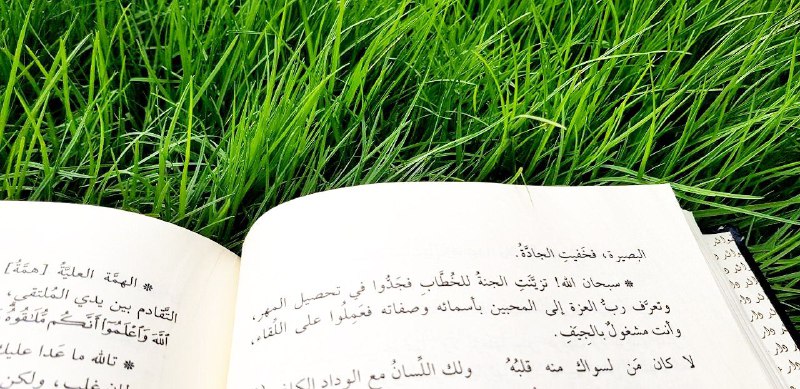 البصيرة، فخَفيتِ الجادَّةُ.
* سبحان الله! تزيَّنَتِ الجنةُ للخُطَّابِ فجَدُّوا في تحصيل المهر،
وتعرَّف ربُّ العزة إلى المحبين بأسمائه وصفاته فعَمِلُوا على اللِّقاء،
وأنت مشغولٌ بالجِيَفِ.
لا كان مَن لسواك منه قلبُهُ ولك اللِّسانُ مع الوداد
* الهمَّة العليَّةُ [همَّةُ]
التَّقادم بين يدي المُلتقي،
ٱللَّهَ وَٱعْلَمُوٓا۟ أَنَّكُم مُّلَـٰقُوهُ
* تالله ما عَدا عليك
غلب، ولكن